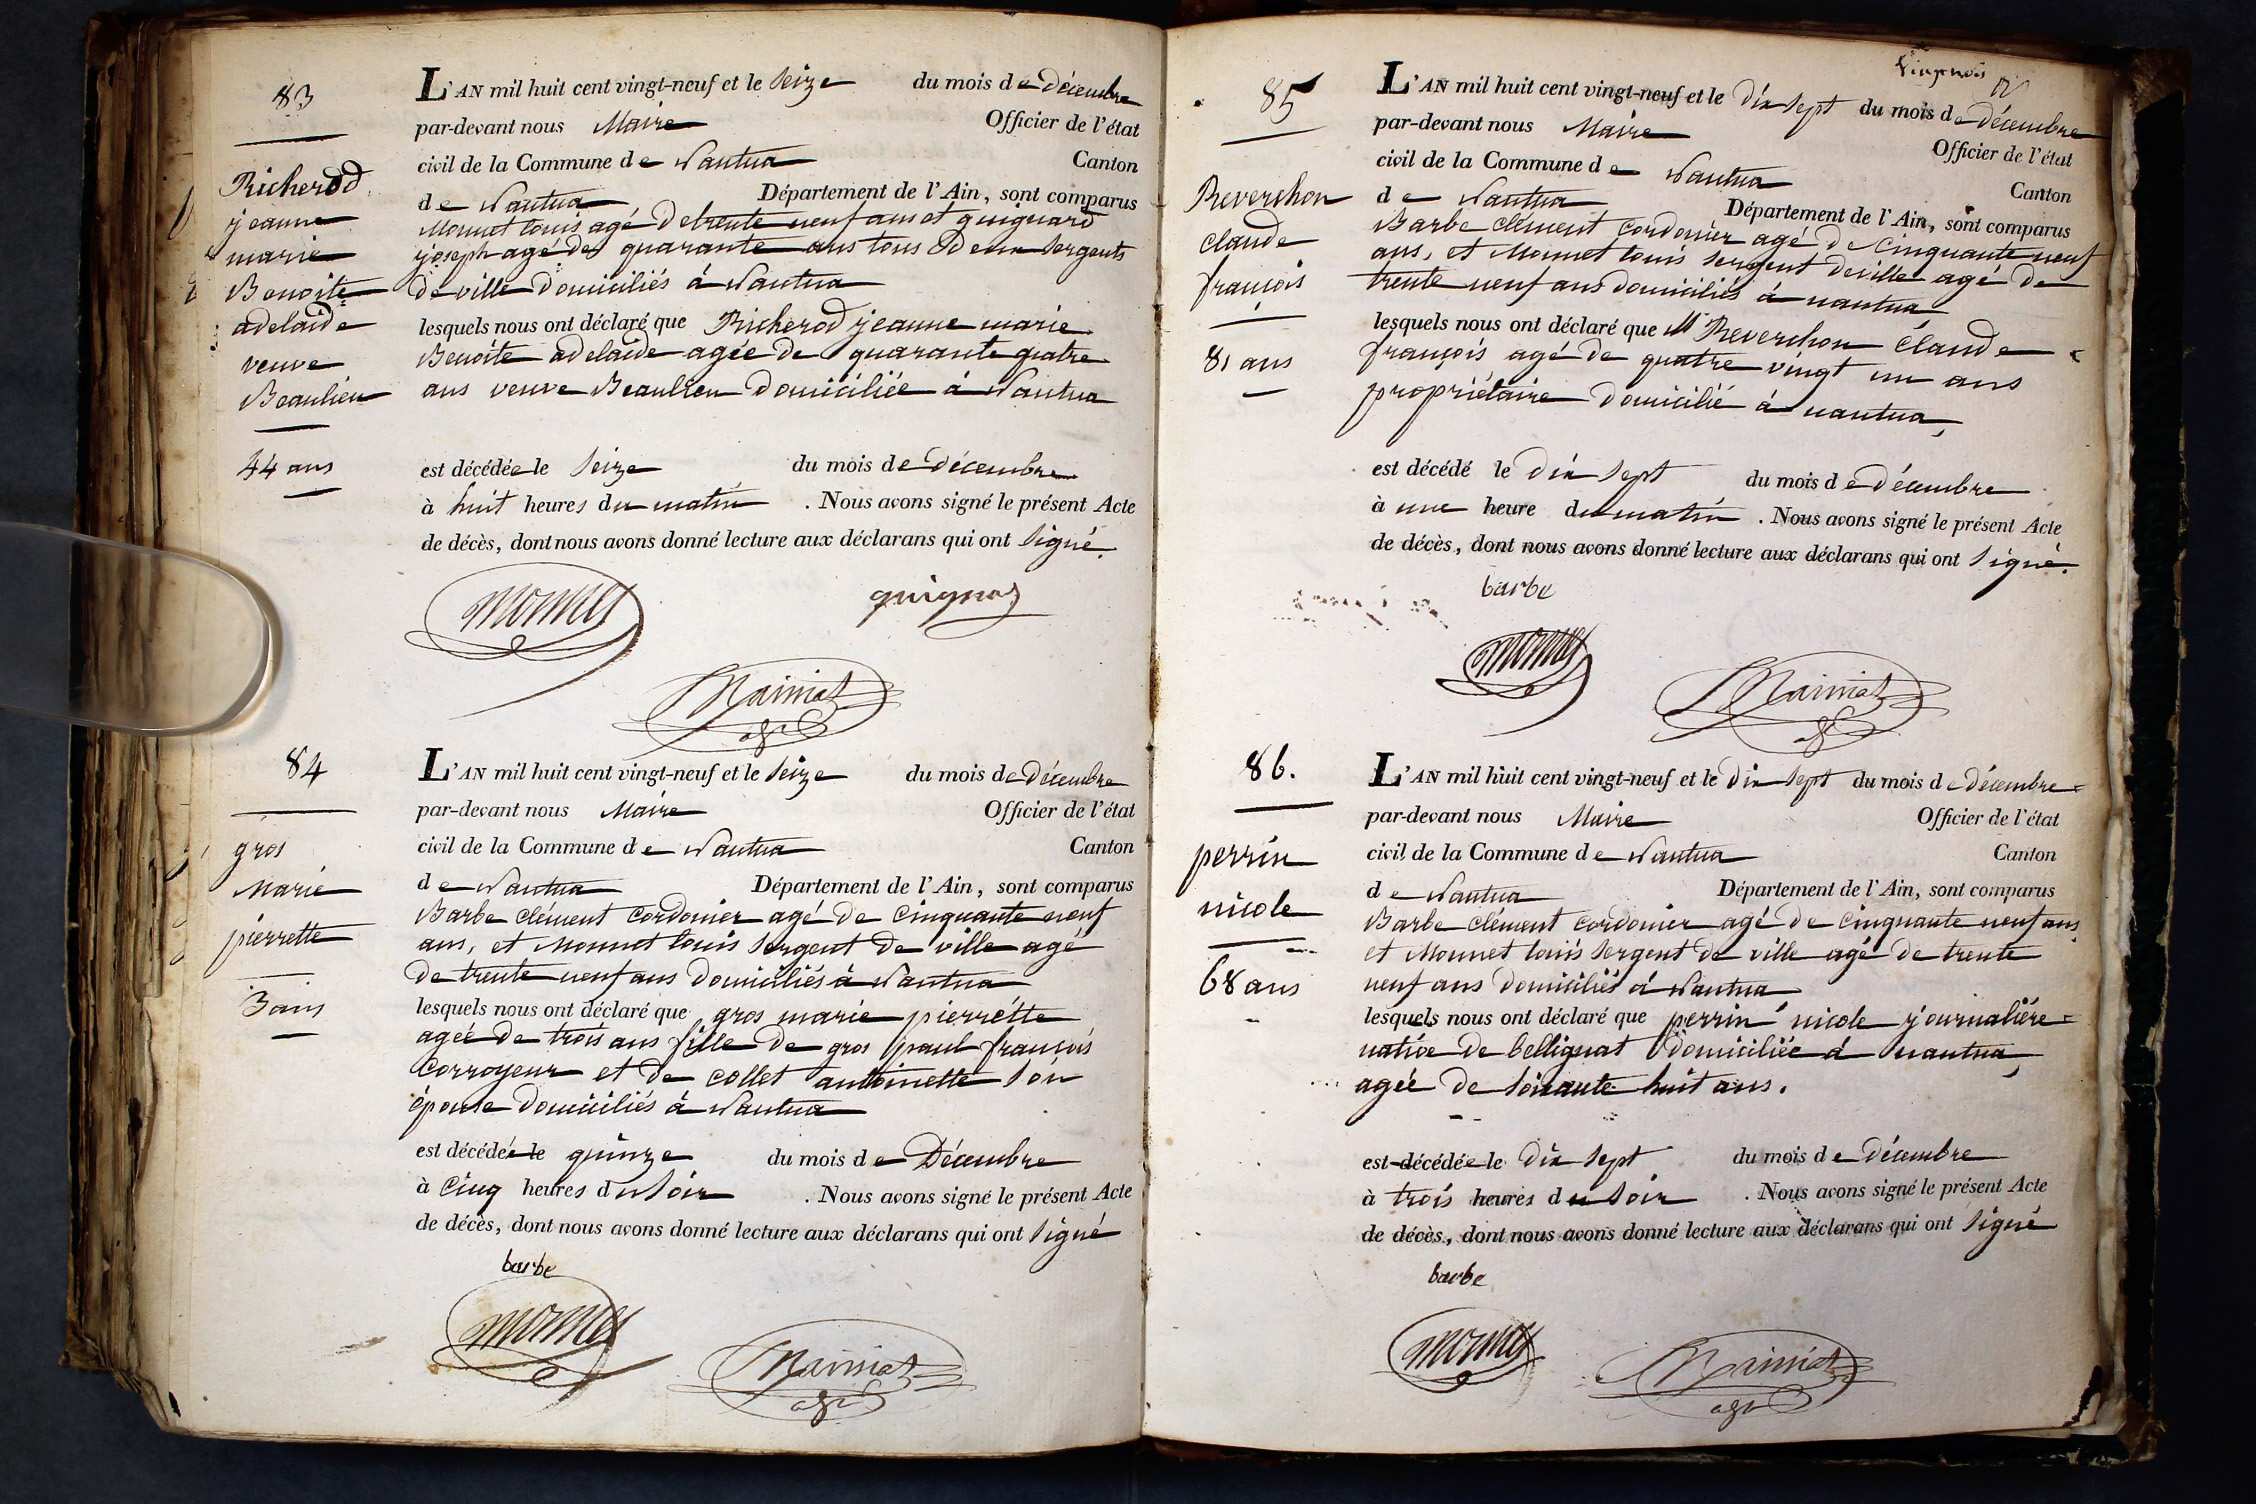 83
Richerod
jeanne
marie
Benoite
adelaide
veuve
Beaulieu
44 ans
L'AN mil huit cent vingt-neuf et le seize du mois de décembre
par-devant nous Maire Officier de l'état
civil de la Commune de Nantua Canton
de Nantua Département de l'Ain, sont comparus
Monnet Louis agé de trente neuf ans et guignard
joseph agé de quarante ans tous deux sergents
de ville domiciliés à Nantua
lesquels nous ont déclaré que Richerod jeanne marie
Benoite adelaide agée de quarante quatre
ans veuve Beaulieu domiciliée à Nantua
est décédée le seize du mois de décembre
à huit heures du matin . Nous avons signé le présent Acte
de décès, dont nous avons donné lecture aux déclarans qui ont signé.
monnet guignard
84
gros
Marie
pierrette
3 ans
L'AN mil huit cent vingt-neuf et le seize du mois de Décembre
par-devant nous Maire Officier de l'état
civil de la Commune de Nantua Canton
de Nantua Département de l'Ain, sont comparus
Barbe clément cordonier agé de cinquante neuf
ans, et Monnet louis sergent de ville agé
de trente neuf ans domiciliés à Nantua
lesquels nous ont déclaré que gros marie pierrette
agée de trois ans fille de gros paul françois
corroyeur et de collet antoinette son
épouse domiciliés à Nantua
est décédée le quinze du mois de Décembre
à cinq heures du soir . Nous avons signé le présent Acte
de décès, dont nous avons donné lecture aux déclarans qui ont signé
barbe
monnet
85
Reverchon
claude
françois
81 ans
L'AN mil huit cent vingt-neuf et le dix sept du mois de décembre
par-devant nous Maire Officier de l'état
civil de la Commune de Nantua Canton
de Nantua Département de l'Ain, sont comparus
Barbe clément cordonier agé de cinquante neuf
ans, et Monnet louis sergent de ville agé de
trente neuf ans domiciliés à nantua
lesquels nous ont déclaré que Mr Reverchon claude
françois agé de quatre vingt un ans
propriétaire domicilié à nantua,
est décédé le dix sept du mois de décembre
à une heure du matin . Nous avons signé le présent Acte
de décès, dont nous avons donné lecture aux déclarans qui ont signé.
barbe
monnet
86.
perrin
nicole
68 ans
L'AN mil huit cent vingt-neuf et le dix sept du mois de décembre
par-devant nous Maire Officier de l'état
civil de la Commune de Nantua Canton
de Nantua Département de l'Ain, sont comparus
Barbe clément cordonier agé de cinquante neuf ans
et Monnet louis sergent de ville agé de trente
neuf ans domiciliés à Nantua
lesquels nous ont déclaré que perrin nicole journalière
native de bellignat domiciliée à nantua,
agée de soixante huit ans.
est décédée le dix sept du mois de décembre
à trois heures du soir . Nous avons signé le présent Acte
de décès, dont nous avons donné lecture aux déclarans qui ont signé
barbe
monnet